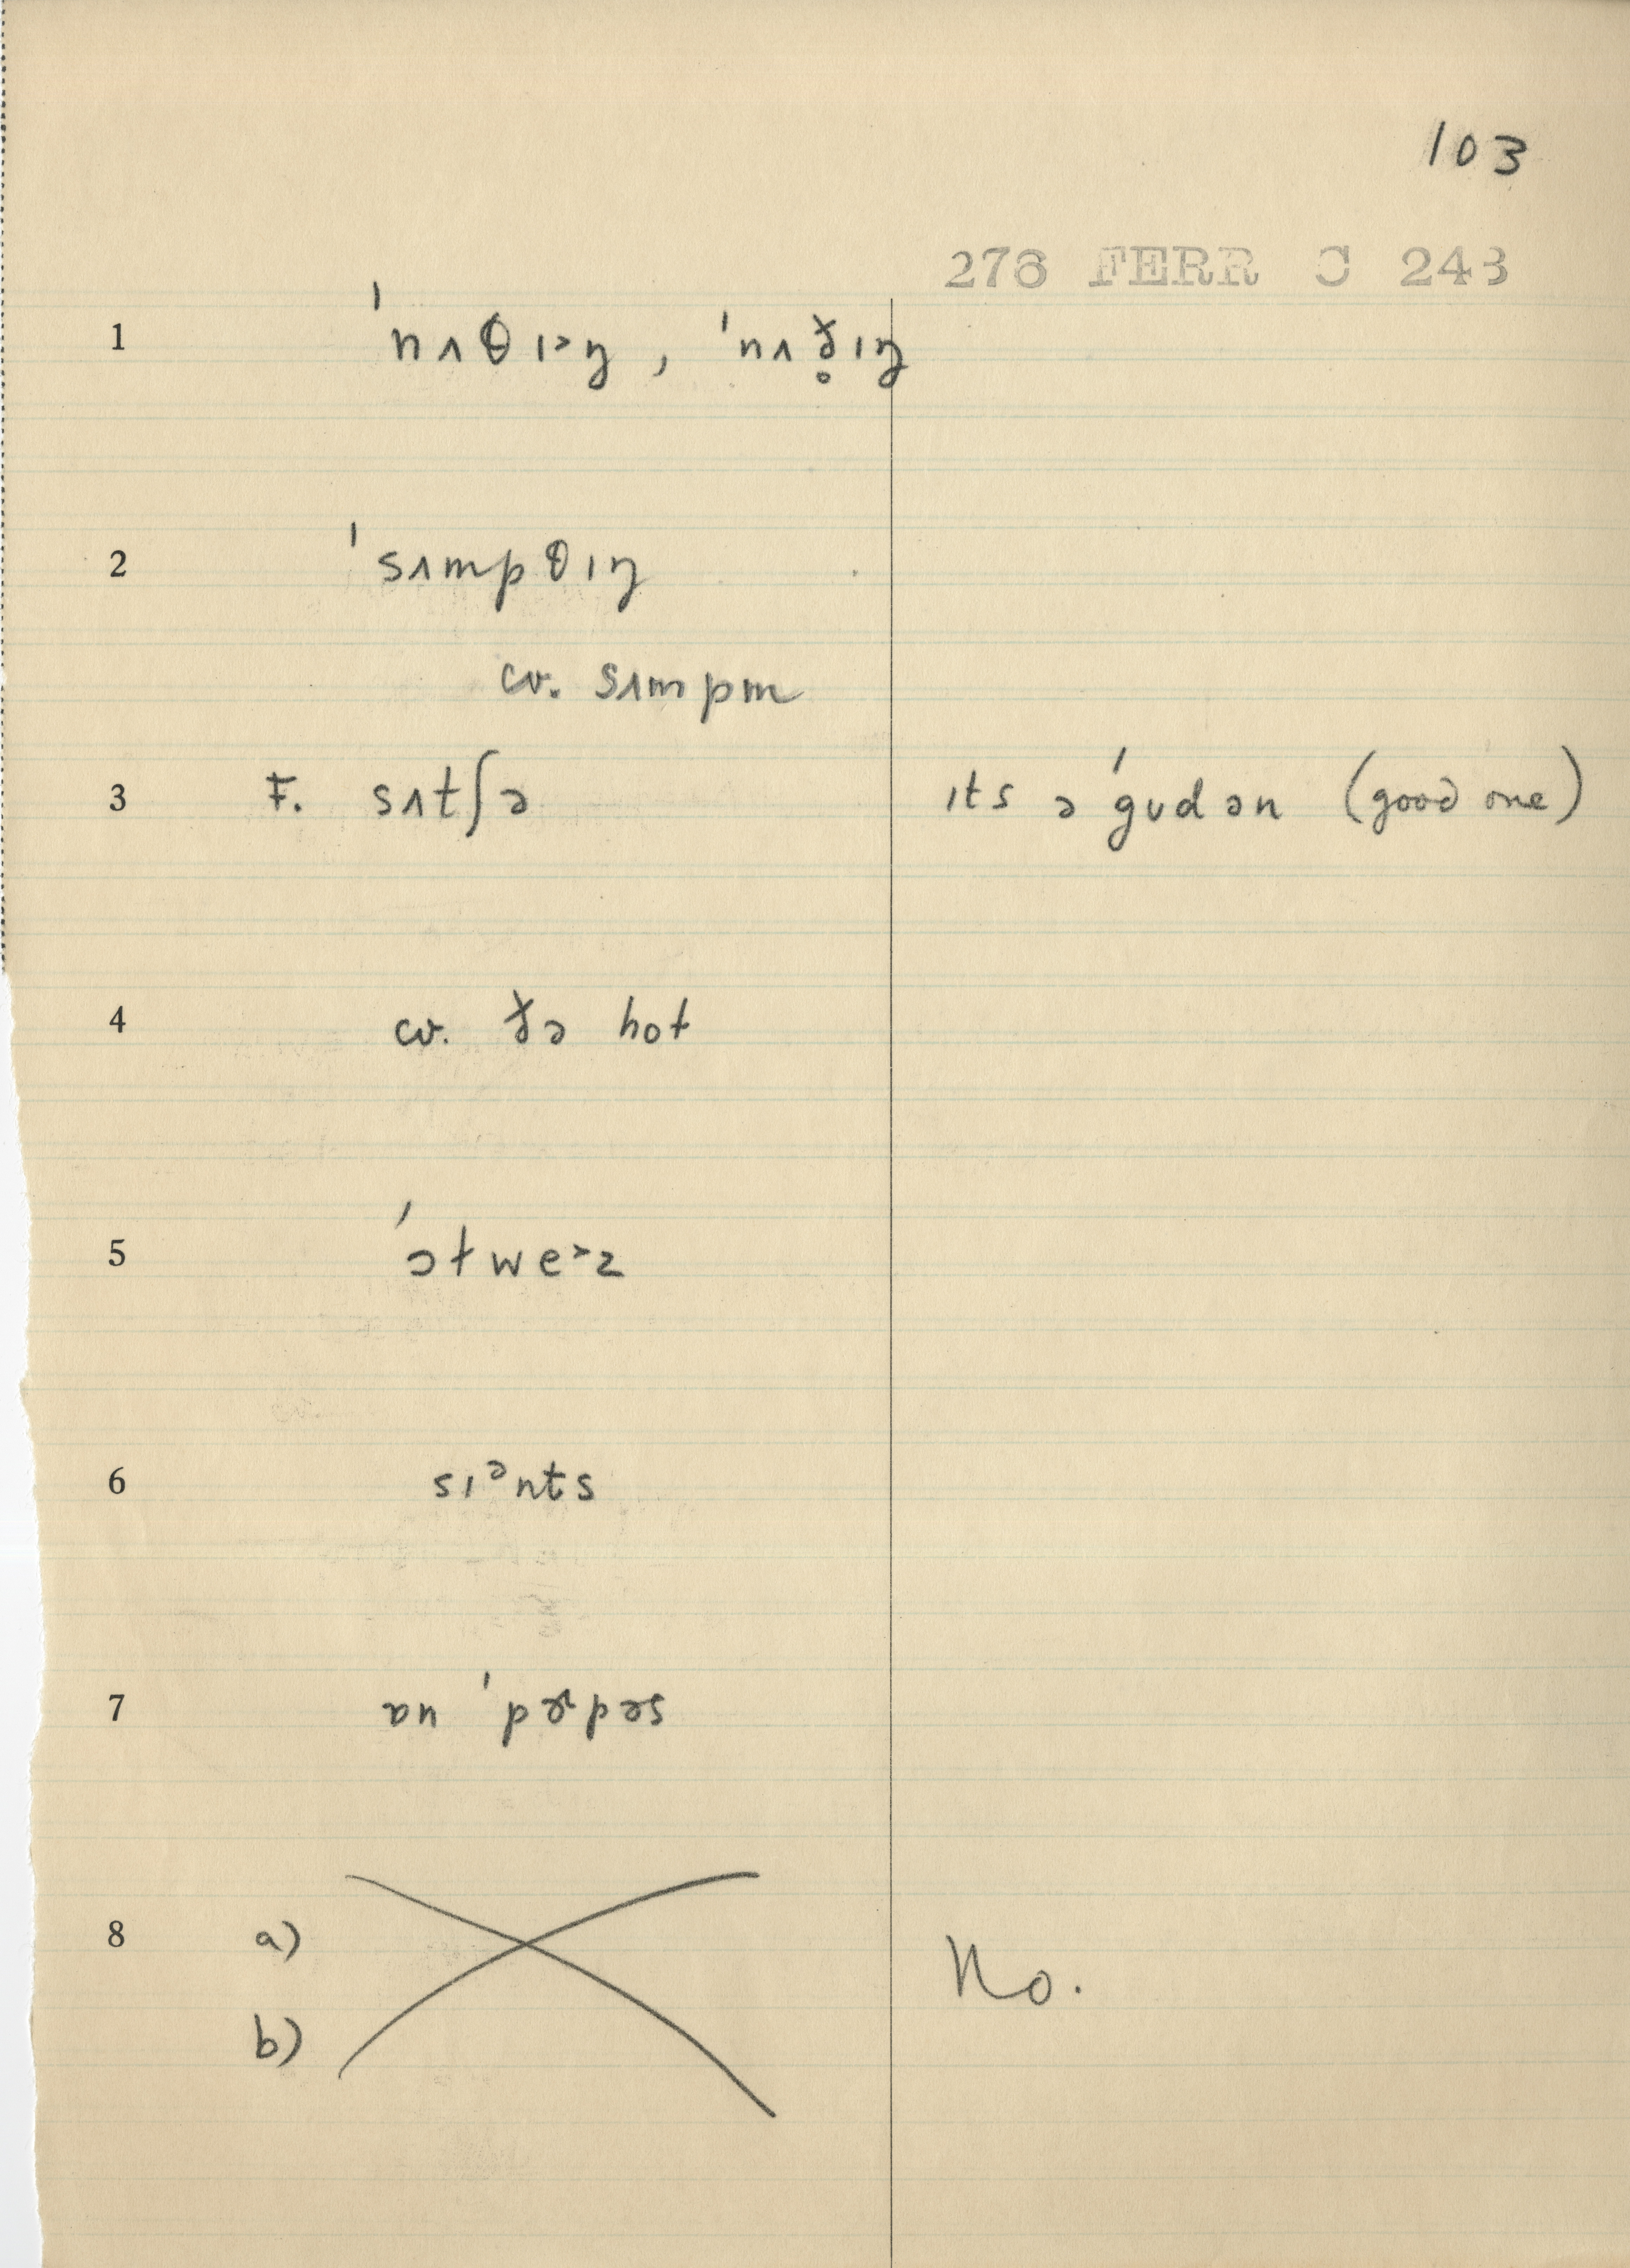 103
276 FERR C 243
1 ˈnʌθɪ˃ŋ, ˈnʌð̥ɪŋ
2 ˈsʌmpθɪŋ
cv. sʌmpm
3 F. sʌtʃə ɪts ə ˈgʊdən (good one)
4 cv. ðə hot
5 ˈɔtwe˃z
6 sɪᵊnts
7 ɒn ˈpɚpəs
8 a) No.
b)